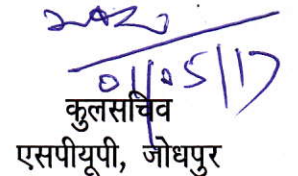 01/05/17
कुलसचिव
एसपीयूपी, जोधपुर